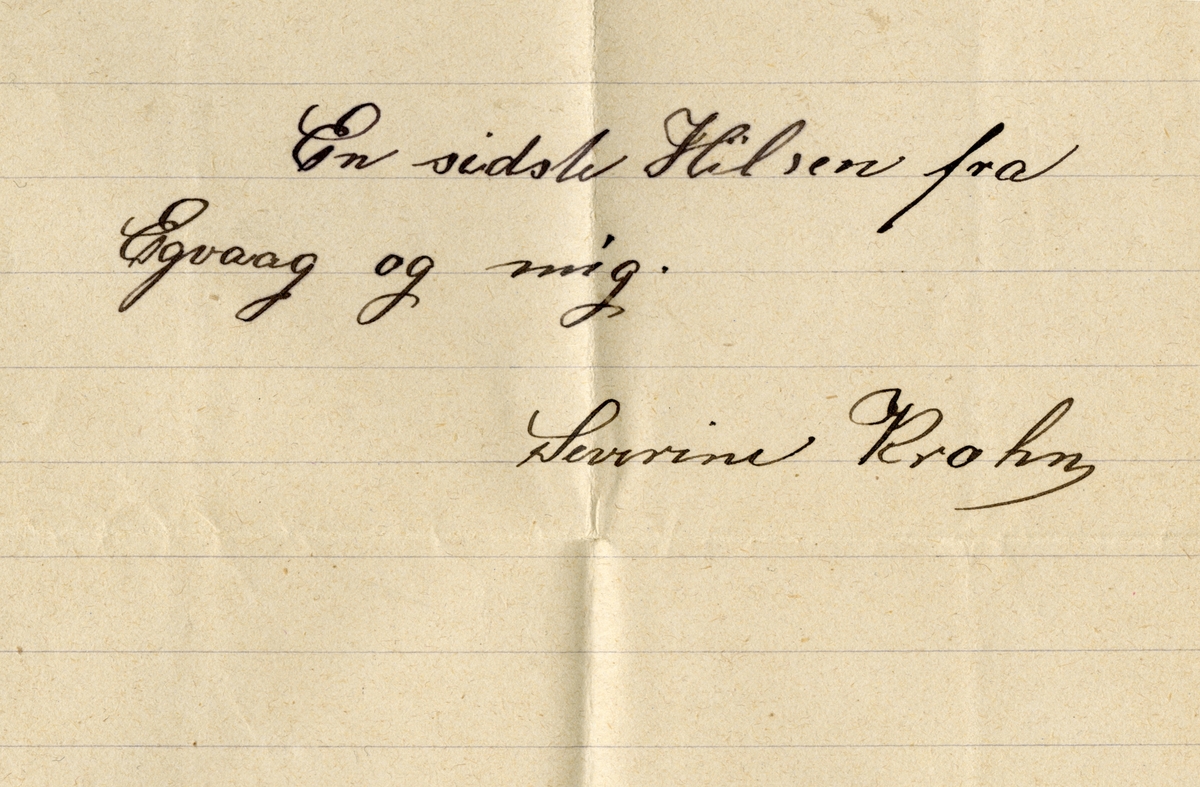 En sidste Hilsen fra
Egvaag og mig.
Severine Krohn